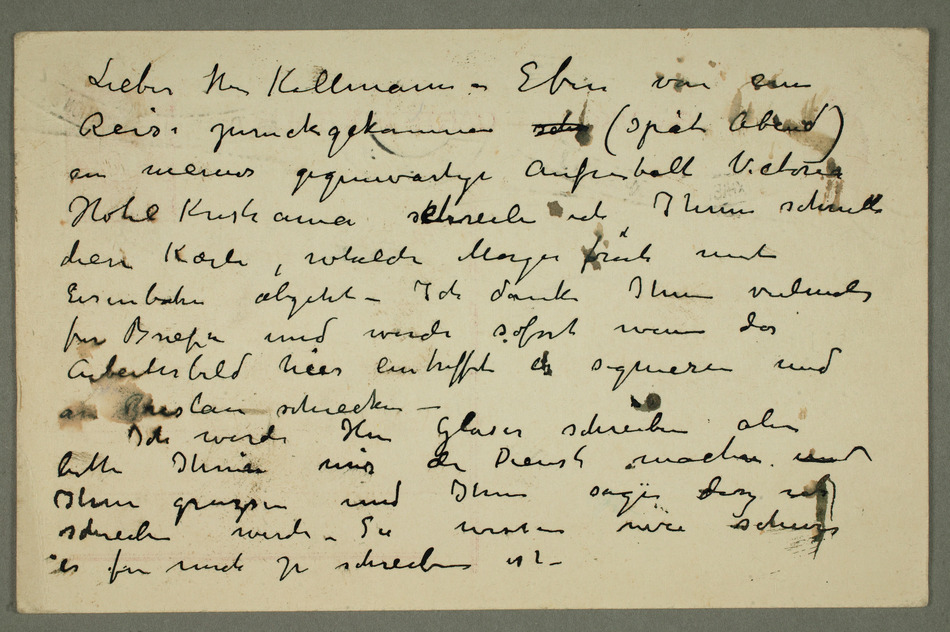 Lieber Herr Kollmann – Eben von einer
Reise zuruckgekommen (spät Abend)
en meines gegenwärtige Aufenthalt Victoria
Hotel Kristiania schreibe ich Ihnen schnell
diese Karte, welche Morgen früh mit
Eisenbahn abgeht – Ich danke Ihnen vielmals
für Briefe und werde sofort wenn das
Arbeiterbild hier eintrifft es signieren und
an Breslau schicken –
Ich werde Herr Glaser schreiben aber
bitte Ihnen mir der Dienst machen und
Ihnen grussen und Ihnen sagen dass ich
schreiben werde – Sie wissen wie schwer
es für mich zu schreiben ist –